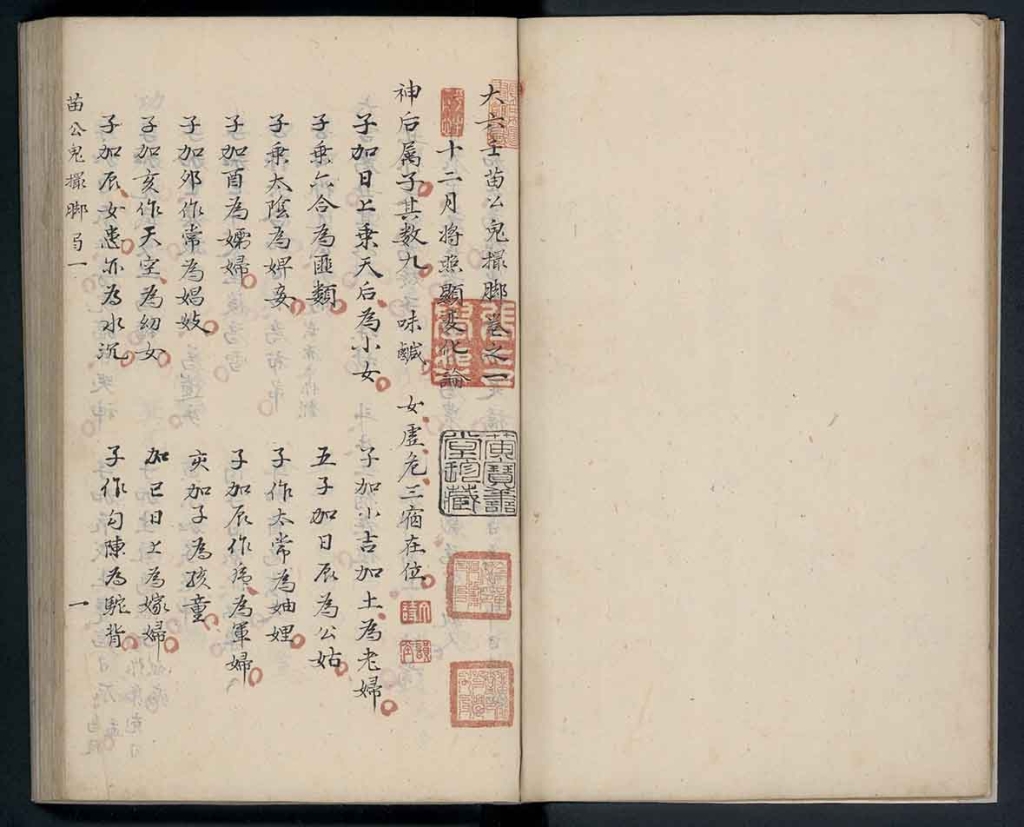 大六壬苗公鬼撮脚卷之一
十二月將照顯变化論
神后属子其数九　味鹹　女虛危三宿在位
子加日上乗天后為小女　子加小吉加土為老婦
子乗六合為匪類　五子加日辰為公姑
子乗太陰為婢妾　子作太常為妯娌
子加酉為孀婦　子加辰作為軍婦
子加夘作常為娼妓　亥加子為孩童
子加亥作天空為幼女　加巳日上為嫁婦
子加辰女患亦為水沉　子作勾陳為駝背
苗公鬼撮脚　一　一
黄寶善堂珍藏